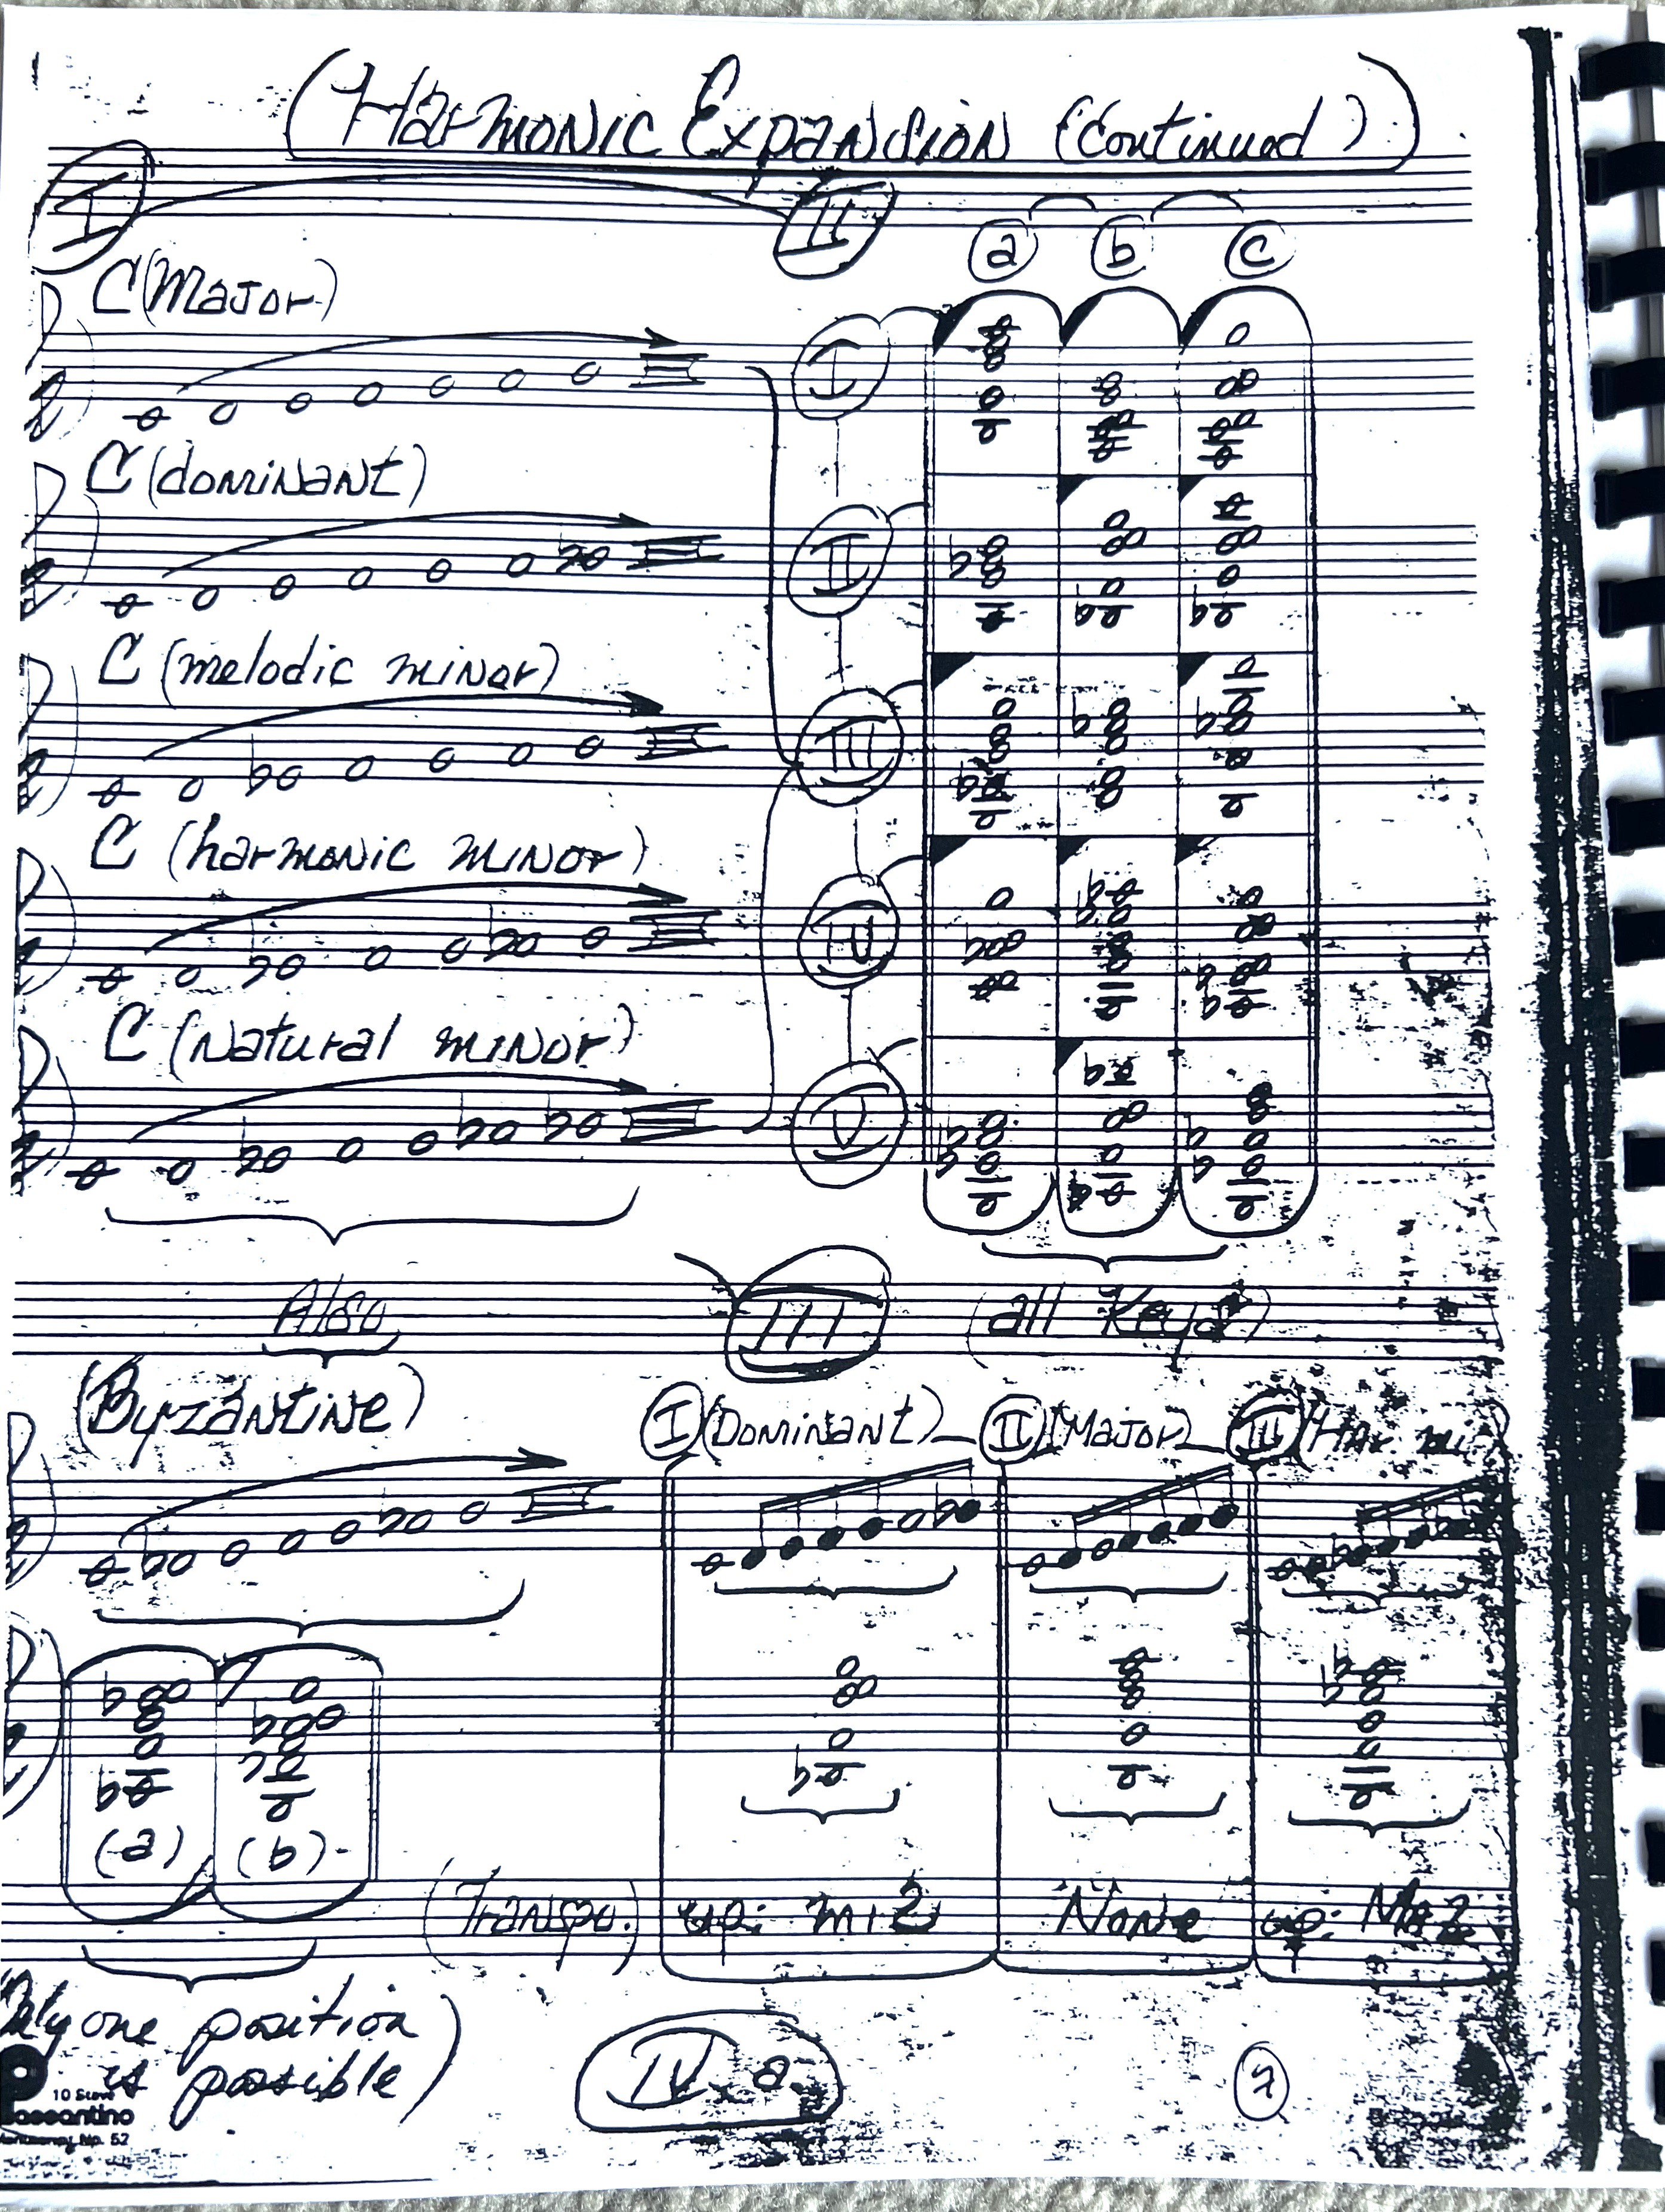 (Harmonic Expansion (continued))
I II
a b c
C (Major)
I
C (dominant)
II
C (melodic minor)
III
C (harmonic minor)
IV
C (Natural minor)
V
Also III (all Keys)
(Byzantine)
I (Dominant) II (Major) III (Har mi)
(a) (b)
(Transpo.) up: mi 2 None up: Ma 2
one position
is possible)
10 Stave
Passantino
No. 52
IV a